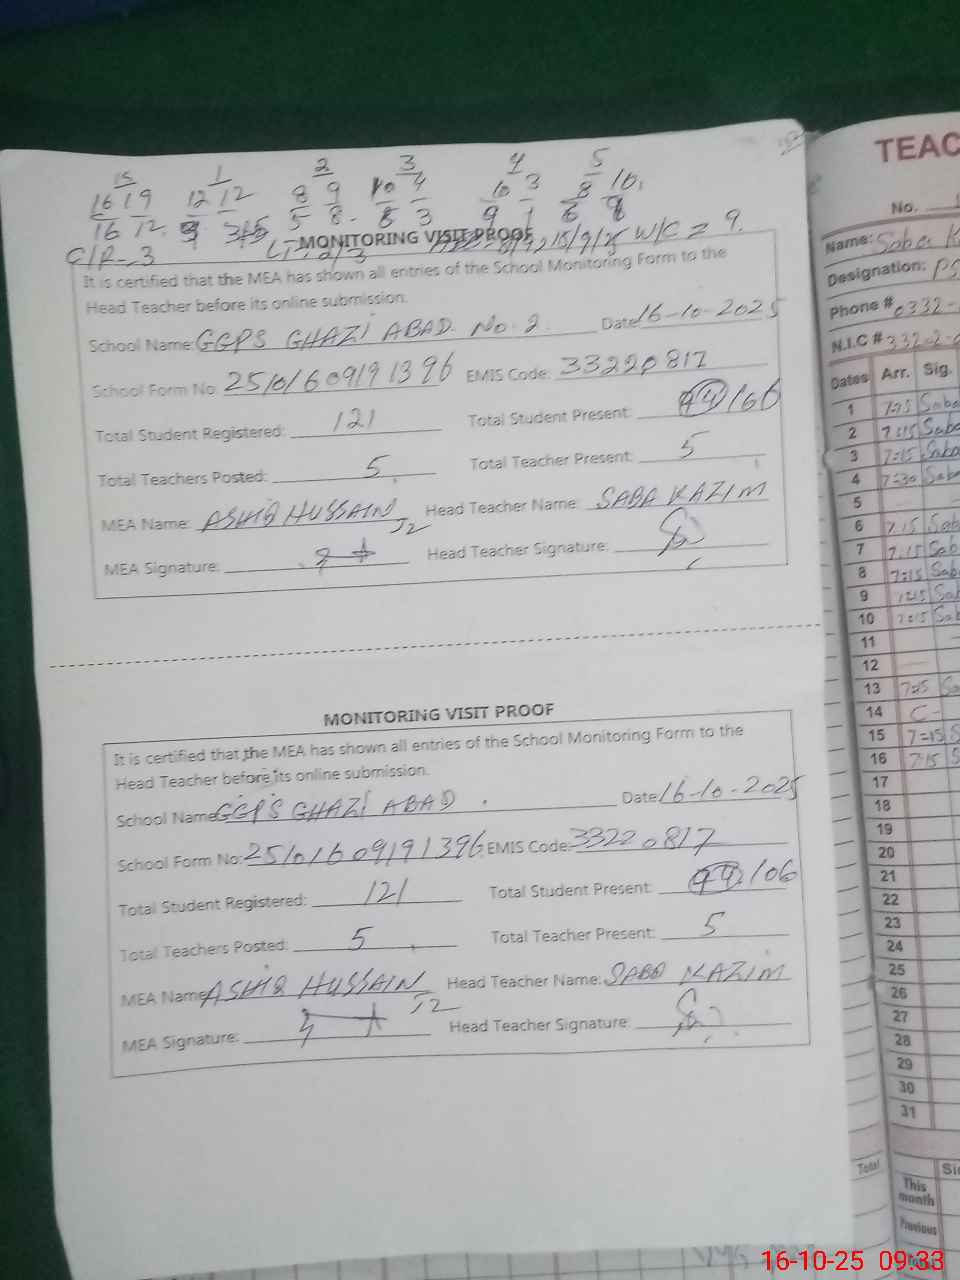 15 1 2 3 4 5
16 19 12 12 8 9 10 4 10 3 8 10
16 12 9 5 8 8 3 9 1 6 8
C/R-3 W/C = 9.
MONITORING VISIT PROOF
It is certified that the MEA has shown all entries of the School Monitoring Form to the
Head Teacher before its online submission.
School Name: GGPS GHAZI ABAD. No. 2. Date 16-10-2025
School Form No: 2510160919 1396 EMIS Code: 33220817
Total Student Registered: 121 Total Student Present: 106
Total Teachers Posted: 5 Total Teacher Present: 5
MEA Name: ASHIQ HUSSAIN J2 Head Teacher Name: SABA KAZIM
MEA Signature: Head Teacher Signature:
MONITORING VISIT PROOF
It is certified that the MEA has shown all entries of the School Monitoring Form to the
Head Teacher before its online submission.
School Name GGPS GHAZI ABAD. Date 16-10-2025
School Form No: 25101609191396 EMIS Code: 33220817
Total Student Registered: 121 Total Student Present: 106
Total Teachers Posted: 5 Total Teacher Present: 5
MEA Name ASHIQ HUSSAIN J2 Head Teacher Name: SABA KAZIM
MEA Signature: Head Teacher Signature:
TEAC
No.
Name: Saba K
Designation: PS
Phone # 0332-
N.I.C # 33202-
Dates Arr. Sig.
1 7:15 Saba
2 7:15 Saba
3 7:15 Saba
4 7:30 Saba
5
6 7:15 Sab
7 7:15 Sab
8 7:15 Sab
9 7:15 Sab
10 7:15 Sab
11
12
13 7:15 Sa
14 C-
15 7:15 S
16 7:15 S
17
18
19
20
21
22
23
24
25
26
27
28
29
30
31
Total Si
This
month
Previous
16-10-25 09:33